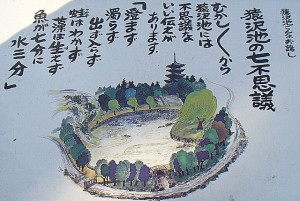 猿沢池の七不思議
むかし〱から
猿沢池には
不思議な
いい伝えが
あります。
「澄まず
濁らず
出ずいらず
蛙はわかず
藻は生えず
魚が七分に
水三分」